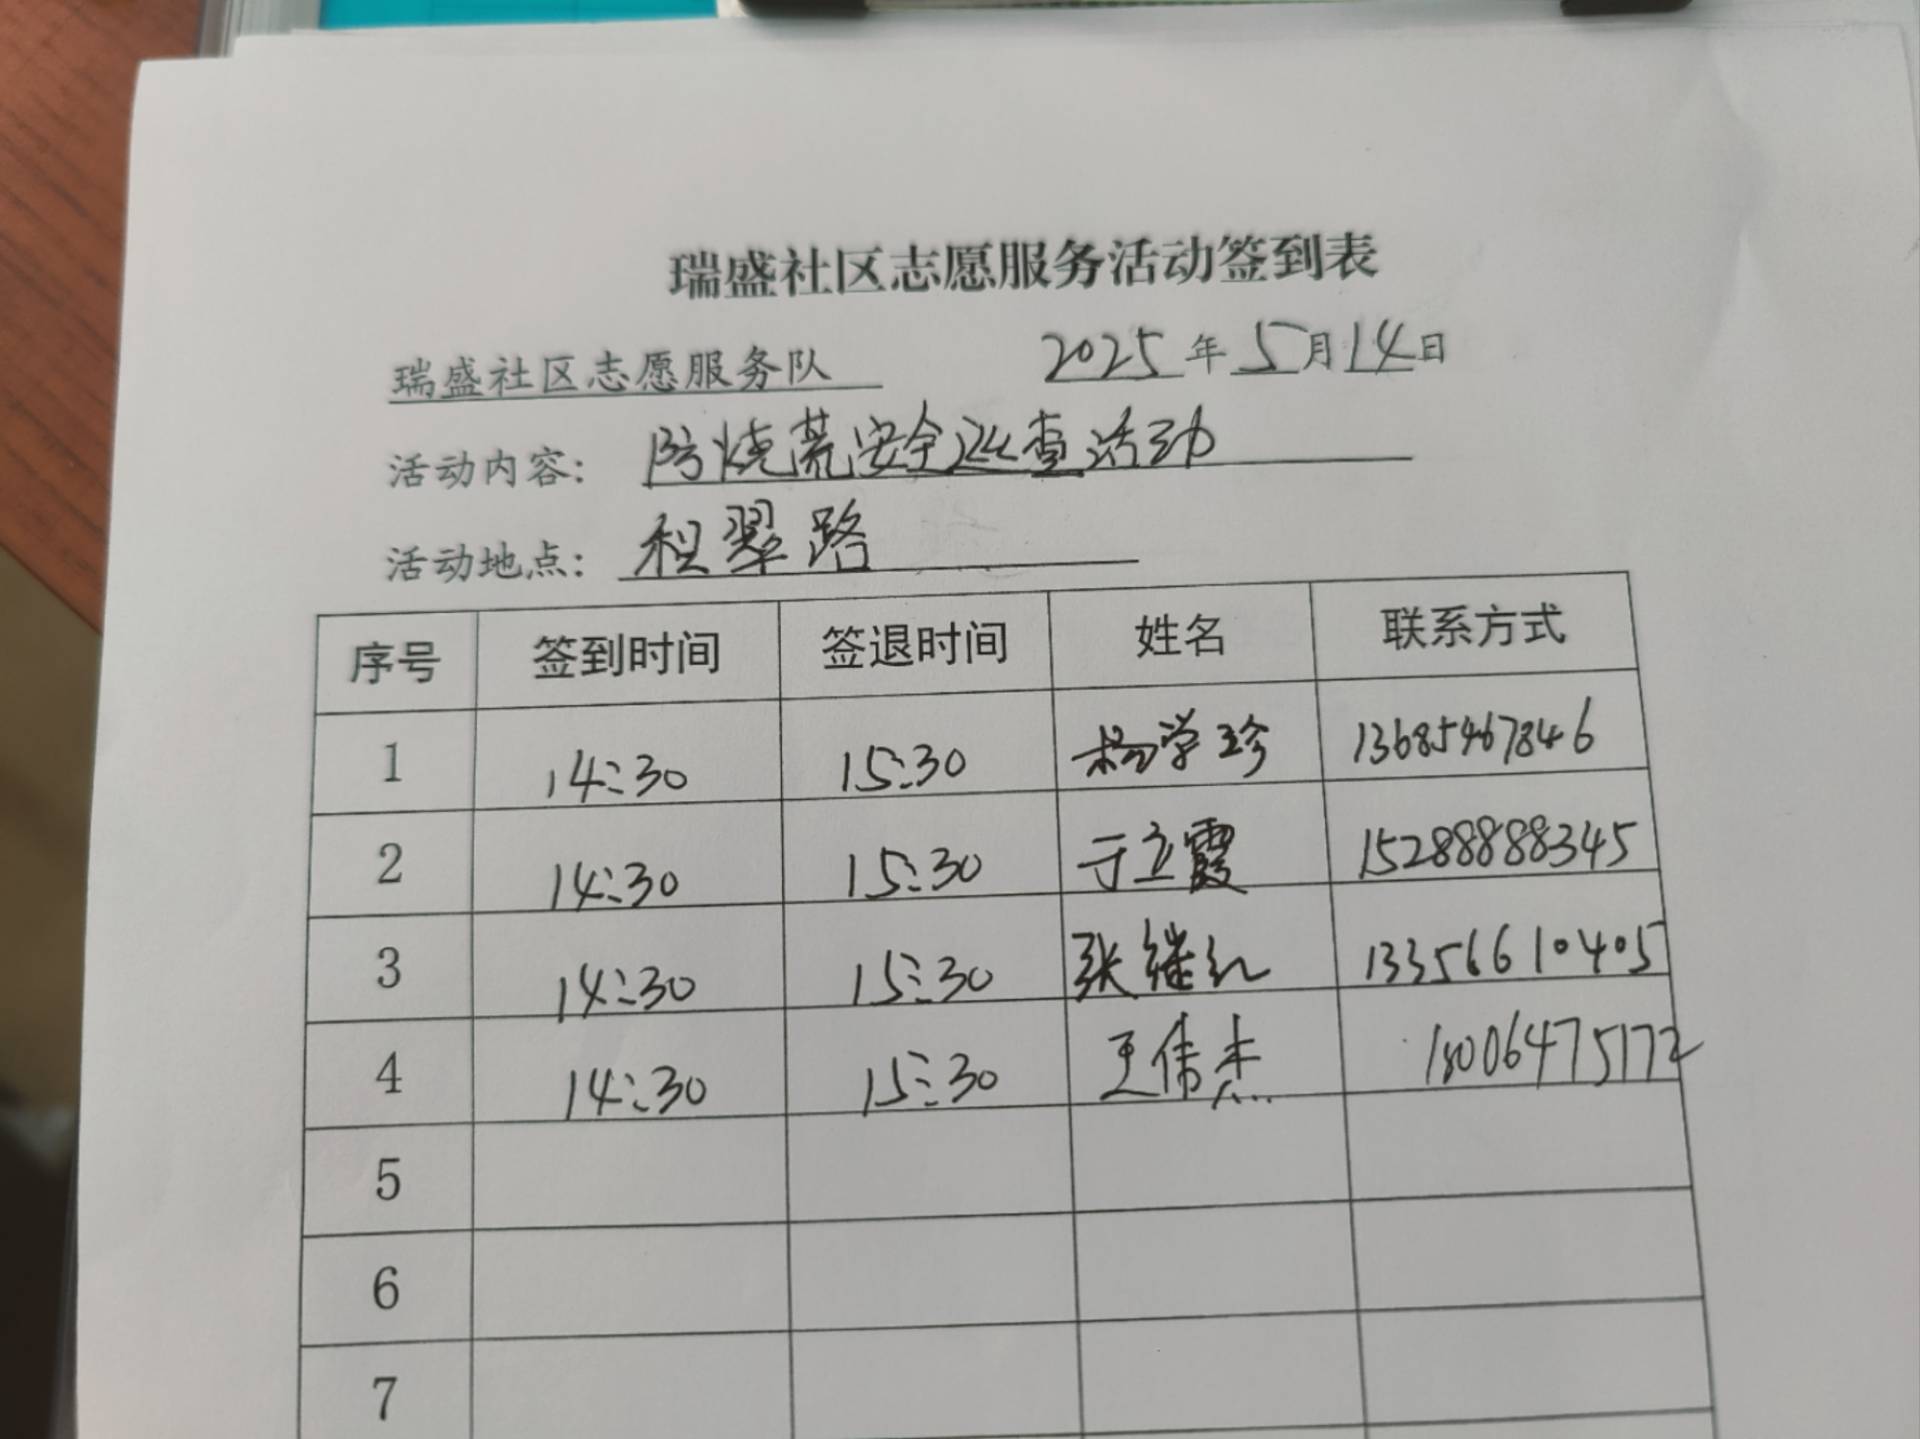 瑞盛社区志愿服务活动签到表
瑞盛社区志愿服务队 2025年5月14日
活动内容: 防烧荒安全巡查活动
活动地点: 积翠路
序号 签到时间 签退时间 姓名 联系方式
1 14:30 15:30 杨学珍 13685467846
2 14:30 15:30 于立霞 15288888345
3 14:30 15:30 张继红 13356610405
4 14:30 15:30 王伟杰 18006475172
5
6
7